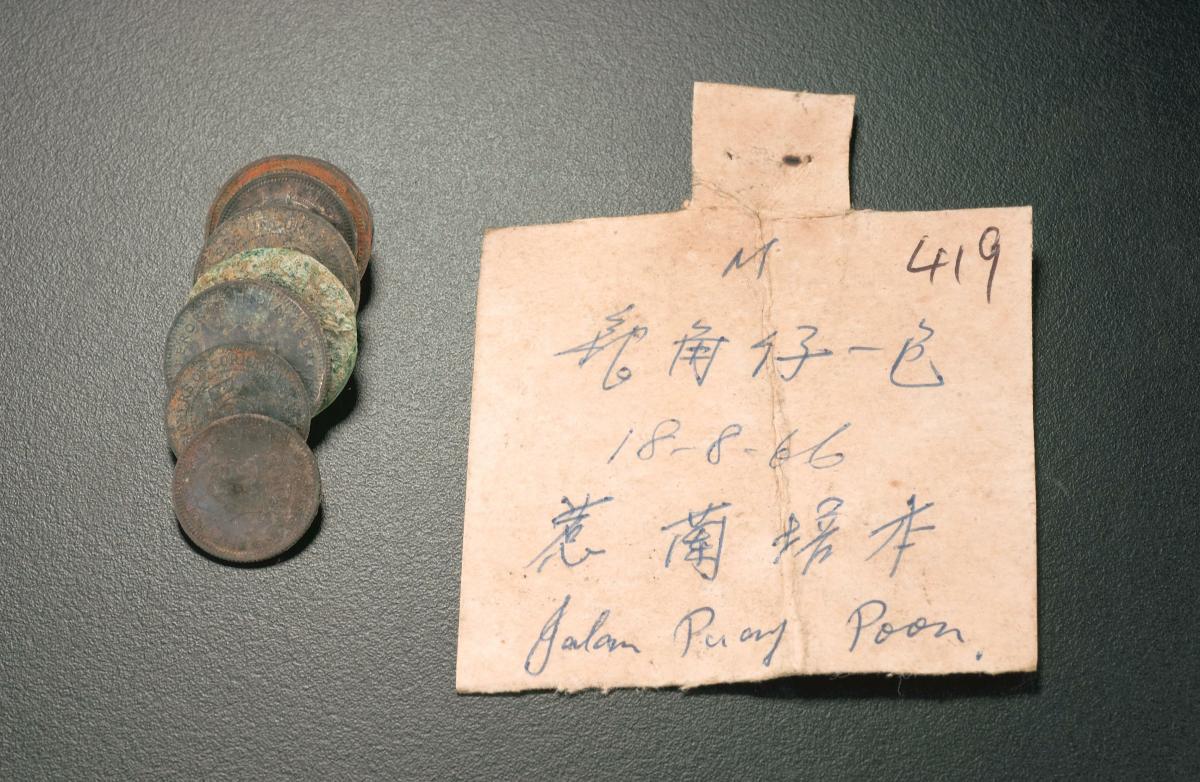 M 419
銀角仔一包
18-8-66
惹蘭培本
Jalan Puay Poon.